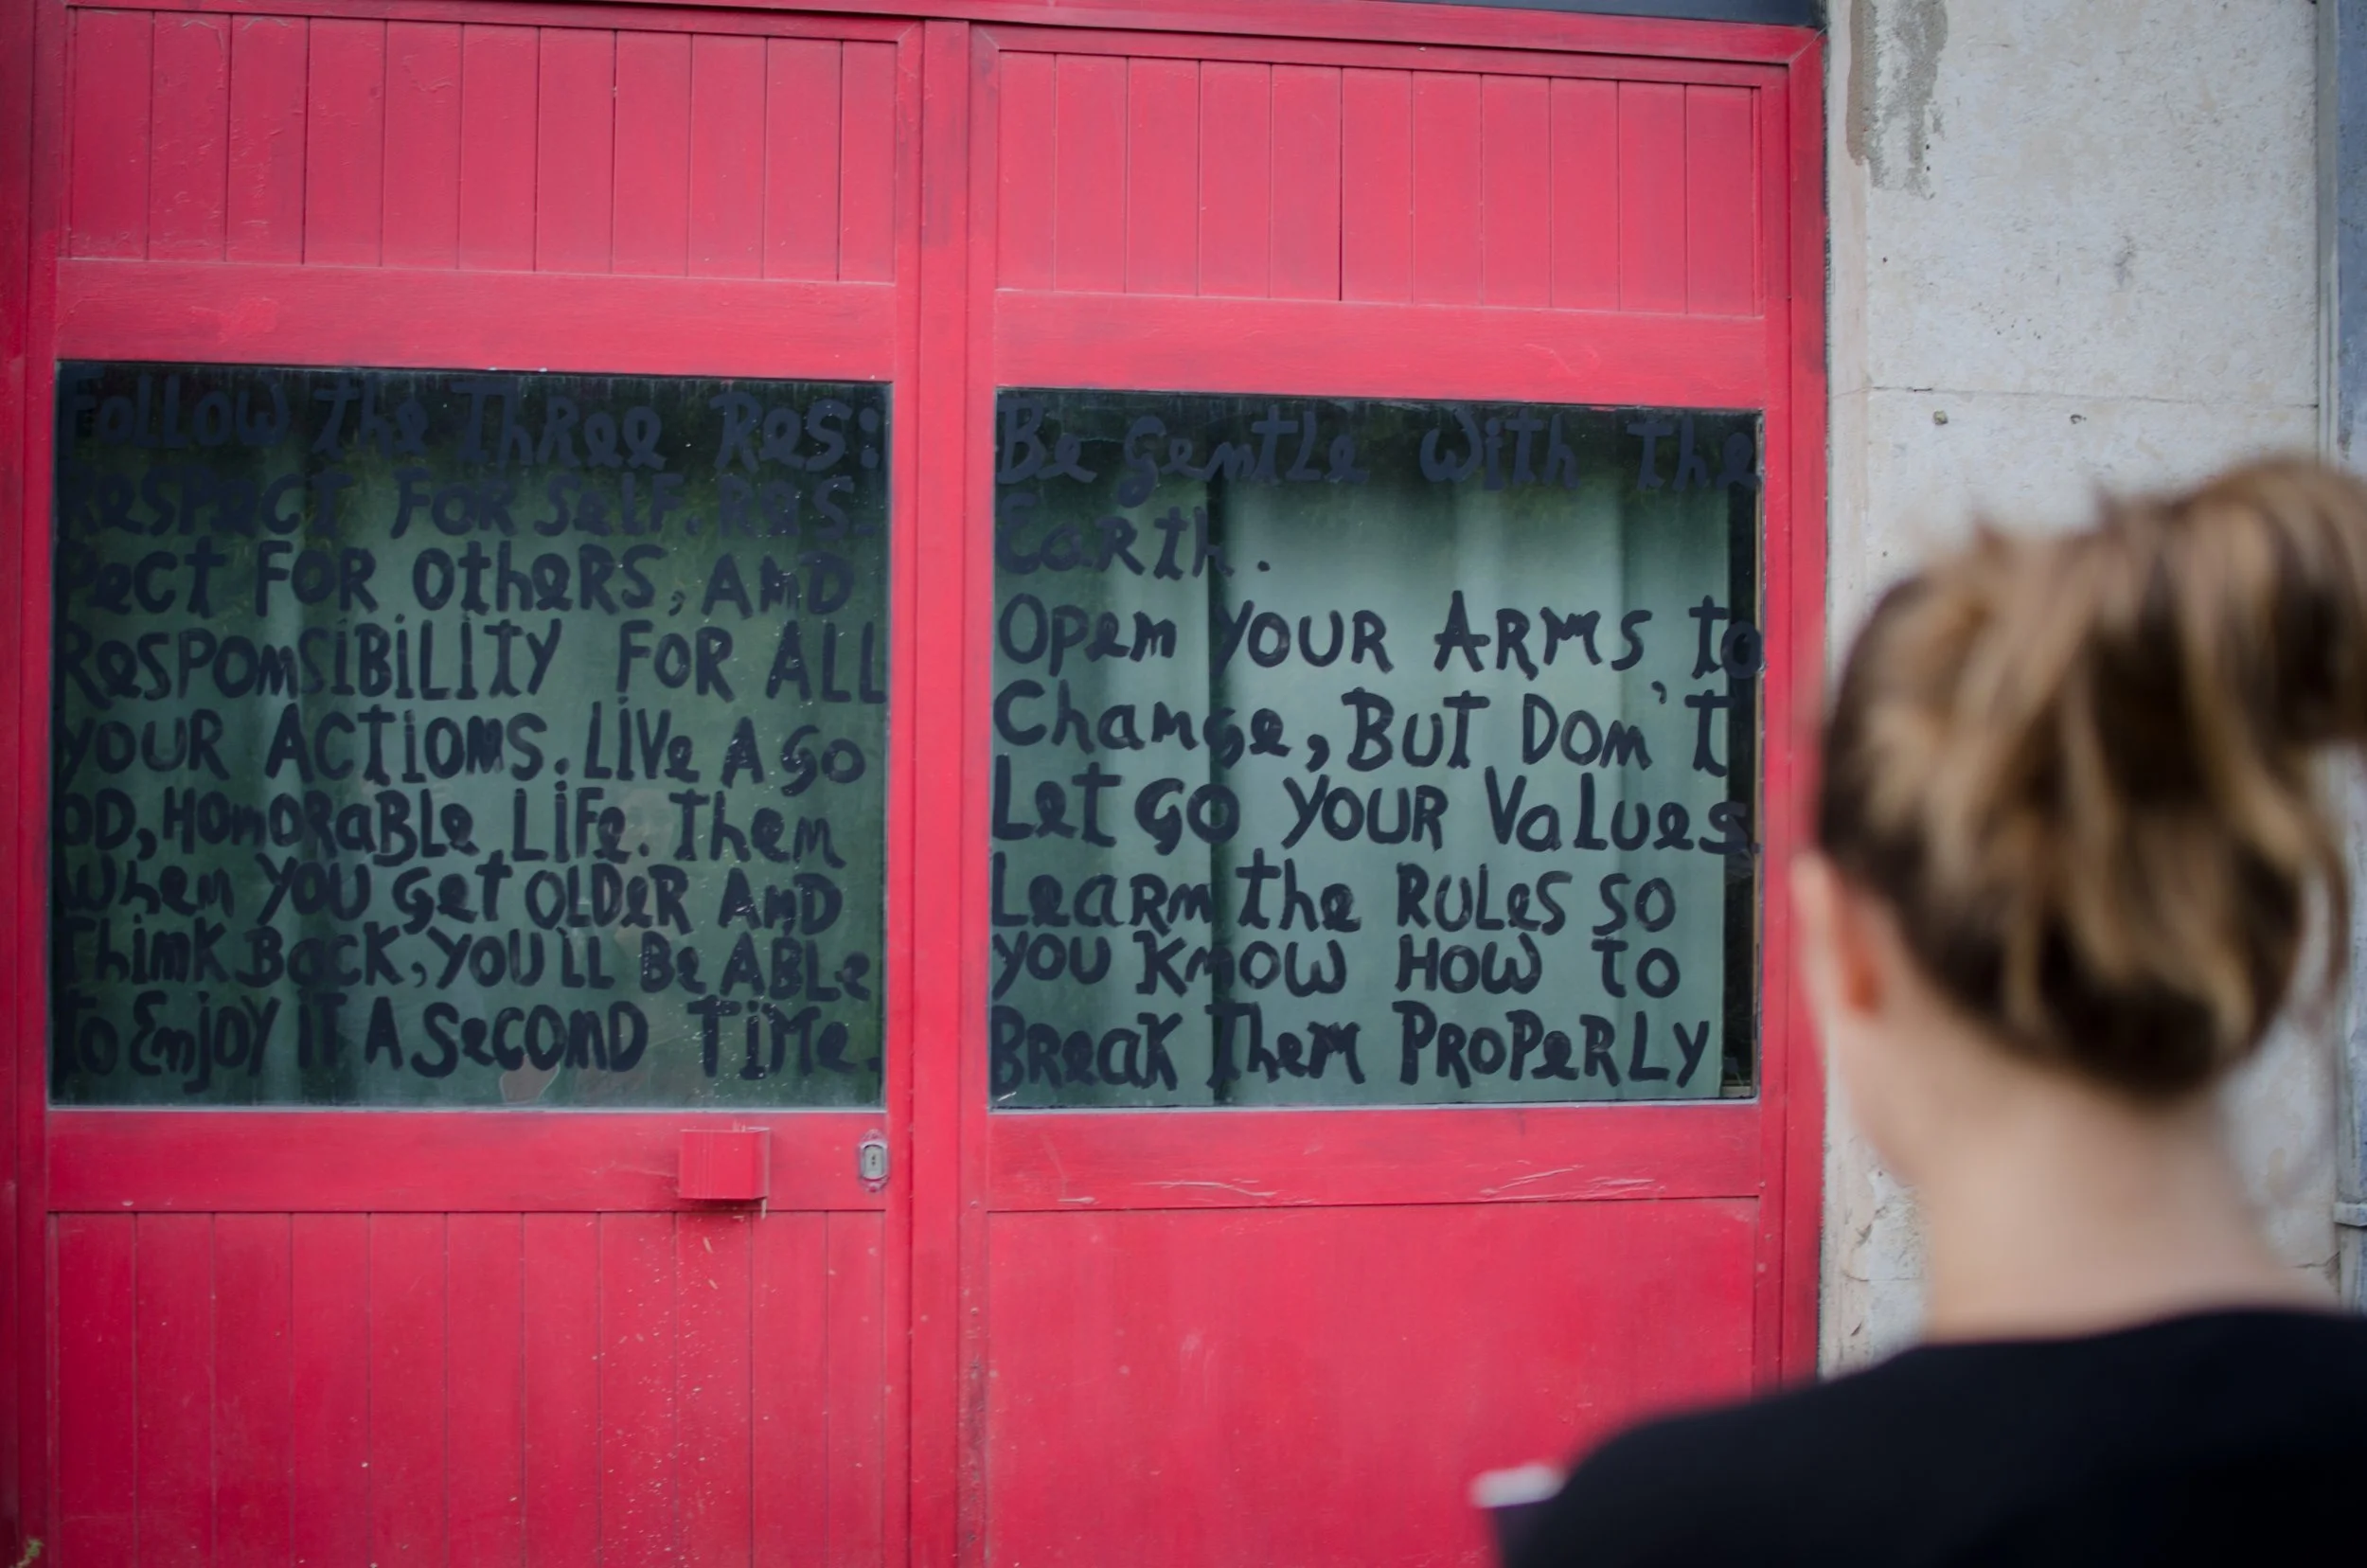 Follow the Three Res:
Respect FOR Self. Res-
Pect FOR OtheRS, AND
ResPonsiBiLiTY FOR ALL
YOUR ACTiONS. Live A Go
OD, HonoRaBLe LiFe. Then
When YOU Get OLDeR AND
Think Back, YOU'LL Be ABLe
To Enjoy iT A SeCOND TiMe.
Be Gentle With The
EaRth.
Open YOUR ARMS to
Change, BUT Don't
Let Go YOUR Values.
LeaRn the RULes so
YOU Know HOW to
BReak Them PRoPeRLY